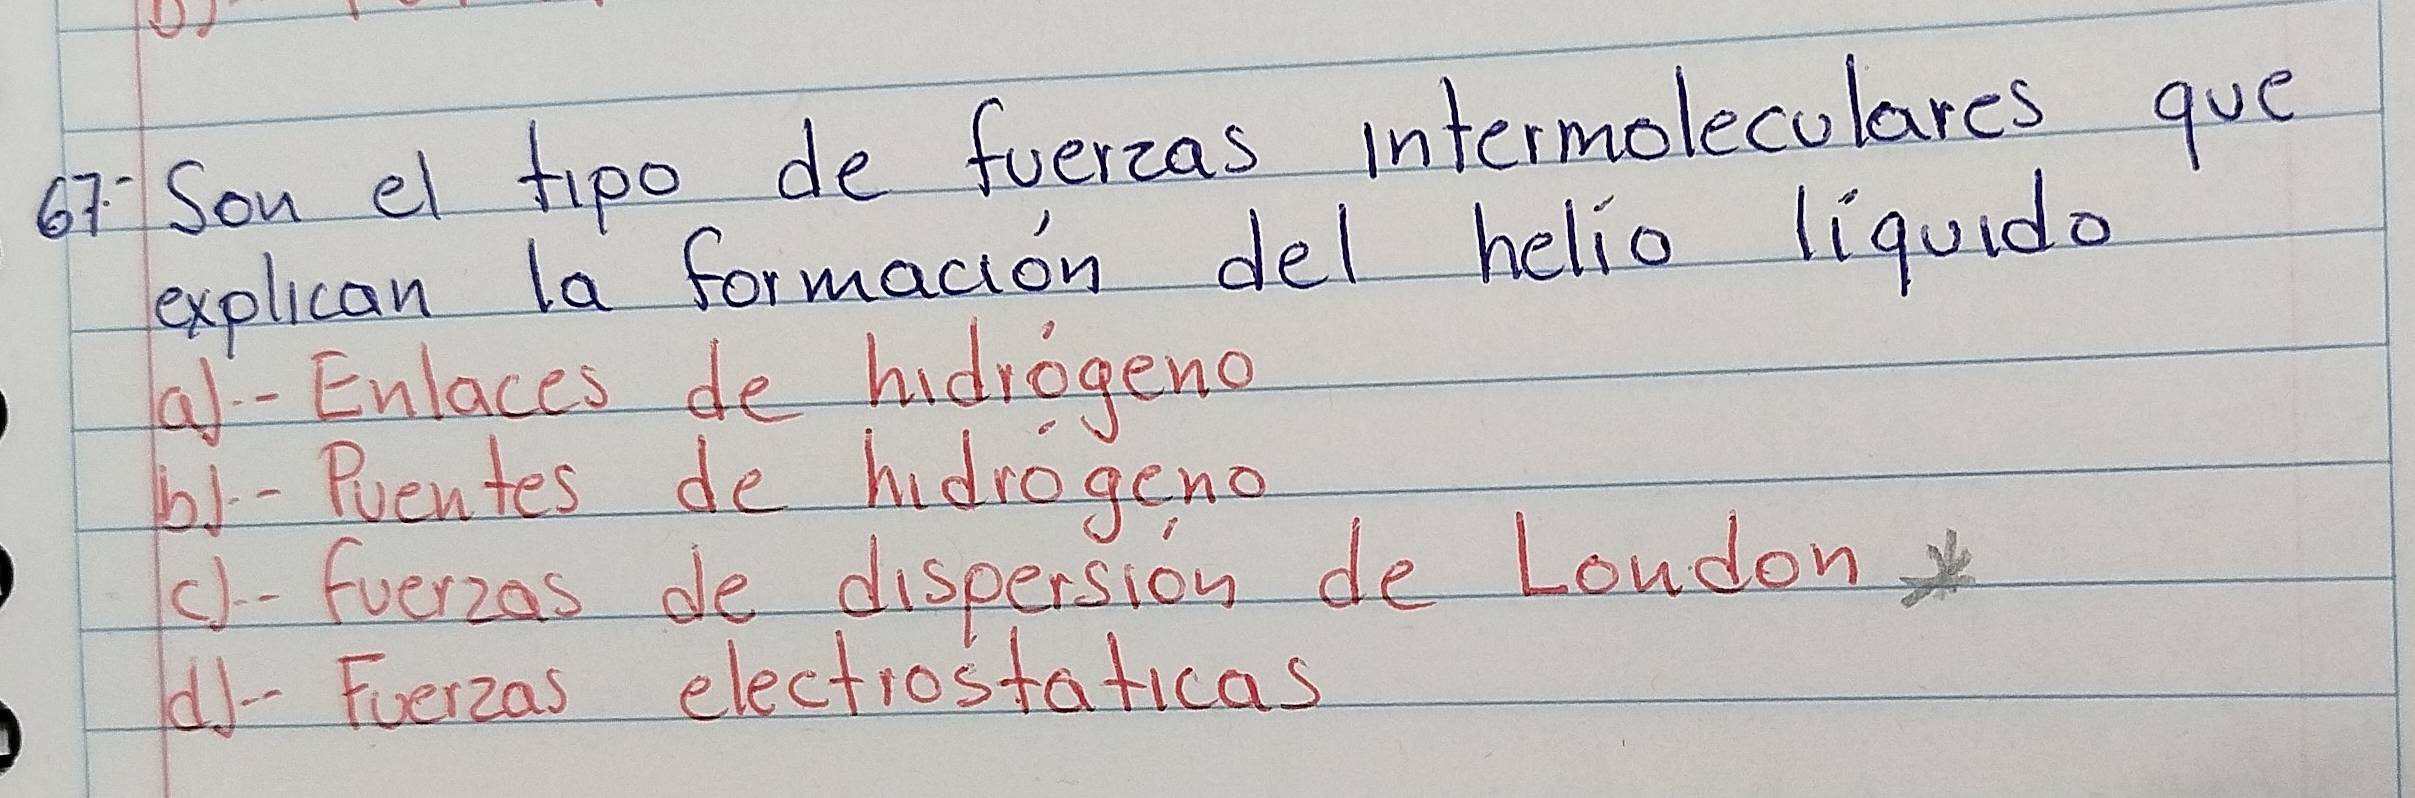 67.- Son el tipo de fuerzas intermoleculares que
explican la formación del helio líquido
a).- Enlaces de hidrógeno
b).- Puentes de hidrógeno
c).- fuerzas de dispersión de London *
d).- Fuerzas electrostaticas